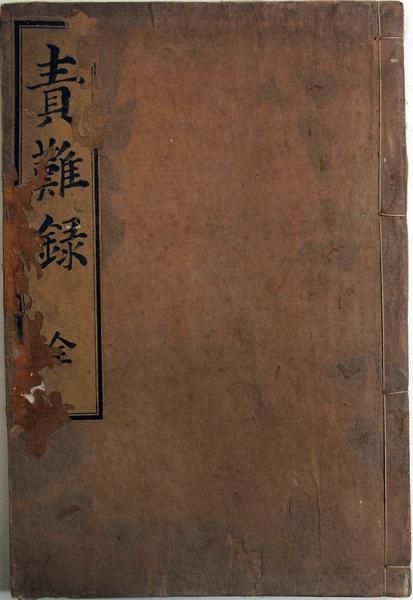 責難録 全